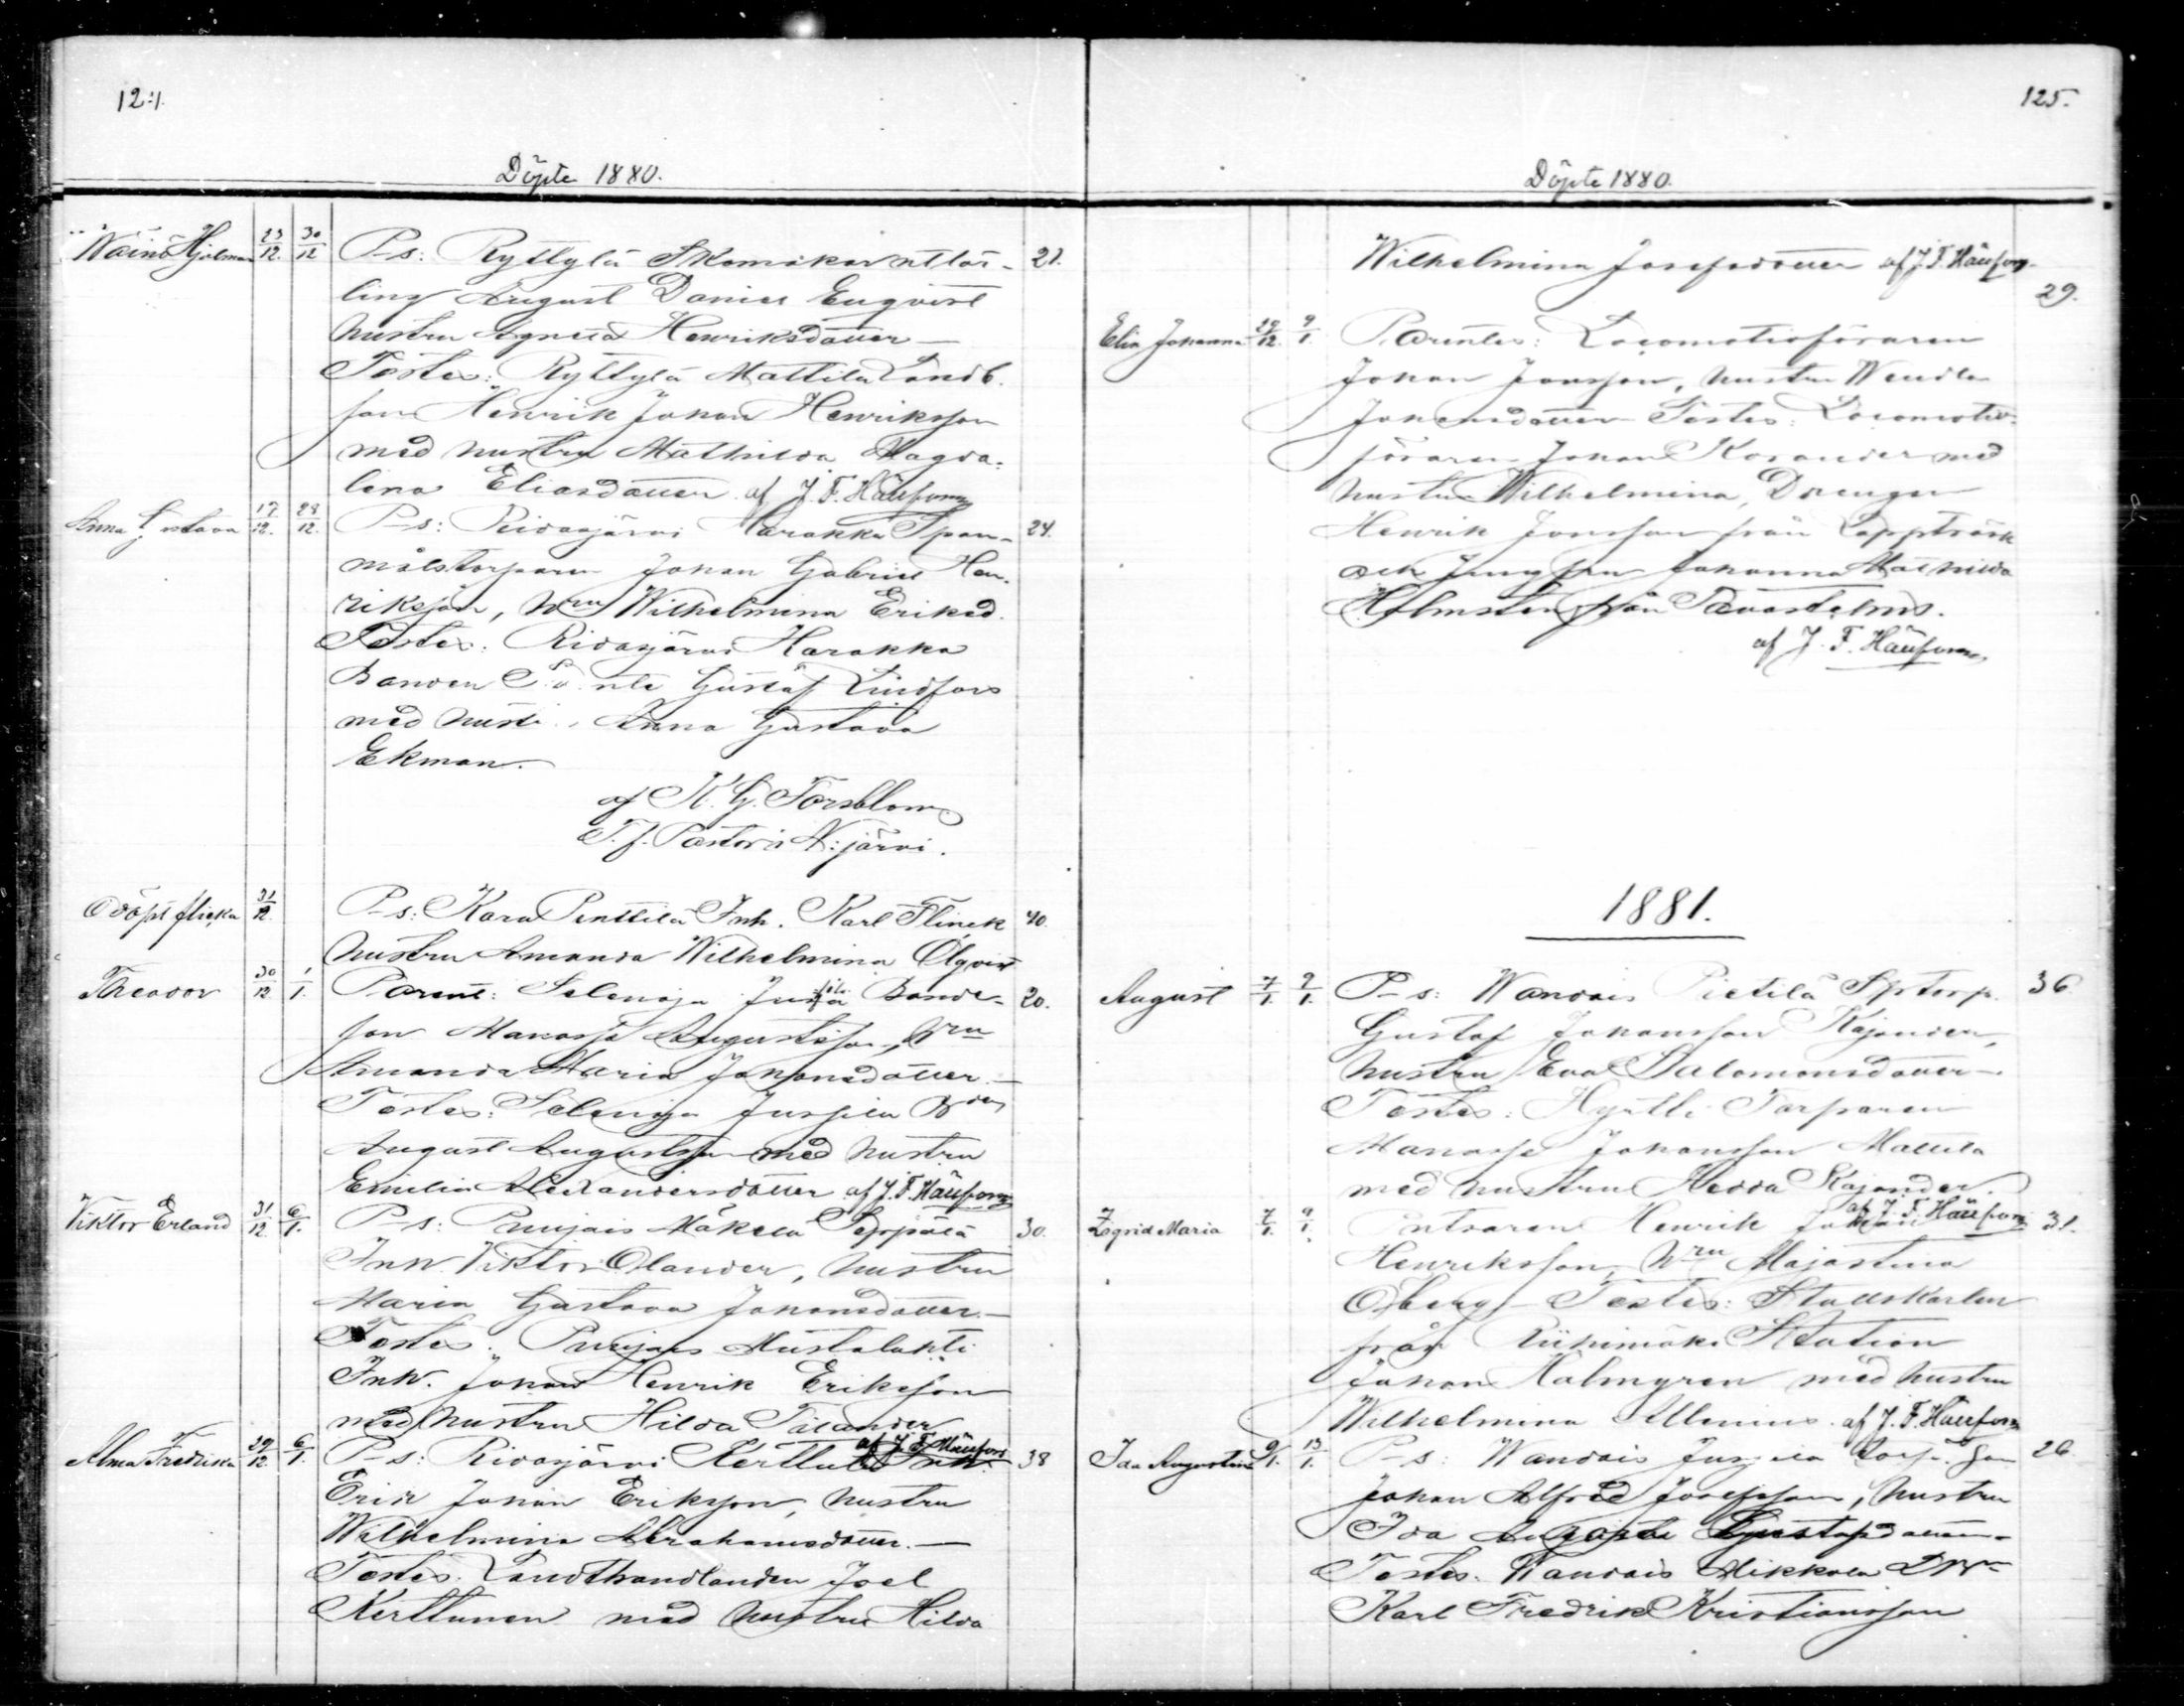 124.
Döpte 1880.
Wäinö Hjalmar 23/12. 30/12 P-s: Ryttylä Skomakar uttlär- 21.
ling August Daniel Enqvist
hustru Agneta Henriksdotter —
Testes: Ryttylä Mattila Landb.
son Henrik Johan Henriksson
med hustru Mathilda Magda-
lena Eliasdotter af J. F. Häufom
Anna Gustava 17/12. 28/12. P-s: Ridasjärvi Harakka Span- 24.
målstorparen Johan Gabriel Hen-
riksson, Hru Wilhelmina Eriksd.
Testes: Ridasjärvi Harakka
Bonden Gustaf Lindfors
med Anna Gustava
Ekman.
af K. G. Forsblom
T. f. Pastor i N:järvi.
Odöpt flicka 31/12. P-s: Kara Penttilä Inh. Karl Flinck 40.
hustru Amanda Wilhelmina Olqvist
Theodor 30/12 1/1. Parent: Selenoja Bonde- 20.
son Manasse Augustsson, Hru
Amanda Maria Johansdotter. —
Testes: Selenoja Jussila
August Augustsson med hustru
Emilia Alexandersdotter af J. F. Häufom
Viktor Erland 31/12. 6/1. P-s: Puujais Mäkelä Seppälä 30.
Inh. Viktor Olander, hustru
Maria Gustava Johansdotter. —
Testes: Puujais Mustalahti
Inh. Johan Henrik Eriksson
med hustru Hilda
af J. F. Häufom
Alma Fredrika 29/12. 6/1. P-s: Ridasjärvi Kerttula Inh. 38
Erik Johan Eriksson, hustru
Wilhelmina Abrahamsdotter. —
Testes: Landthandlanden Joel
Kerttunen med hustru Hilda
125.
Döpte 1880.
Wilhelmina Josefsdotter af J. F. Häufom
29.
Elin Johanna 29/12. 9/1. Parentes: Locomotivföraren
Johan Jonsson, hustru Wendla
Johansdotter — Testes: Locomotiv-
föraren Johan Korander med
hustru Wilhelmina, Drengen
Henrik Jonsson från Lappträsk
och Jungfrun Johanna Mathilda
Holmsten från Tavastehus.
af J. F. Häufom
1881.
August 7/1. 9/1. P-s: Wandais Pietilä Sptorp. 36
Gustaf Johansson Kajander,
hustru Eva Salomonsdotter —.
Testes: Torparen
Manasse Johansson Mattila
med hustru Hedda Kajander.
af J. F. Häufom
Zigrid Maria 7/1. 9/1. Putsaren Henrik Johan 31.
Henriksson, Hru Majastina
Öberg — Testes: Stallskarlen
från Riihimäki Station
Johan Malmgren med hustru
Wilhelmina Allenius. af J. F. Häufom
Ida Augusta 9/1. 13/1. P-s: Wandais Jussila Torp. Son 26
Johan Alfred Josefsson, hustru
Ida Augusta Gustafsdotter —
Testes: Wandais Mikkola
Karl Fredrik Kristiansson